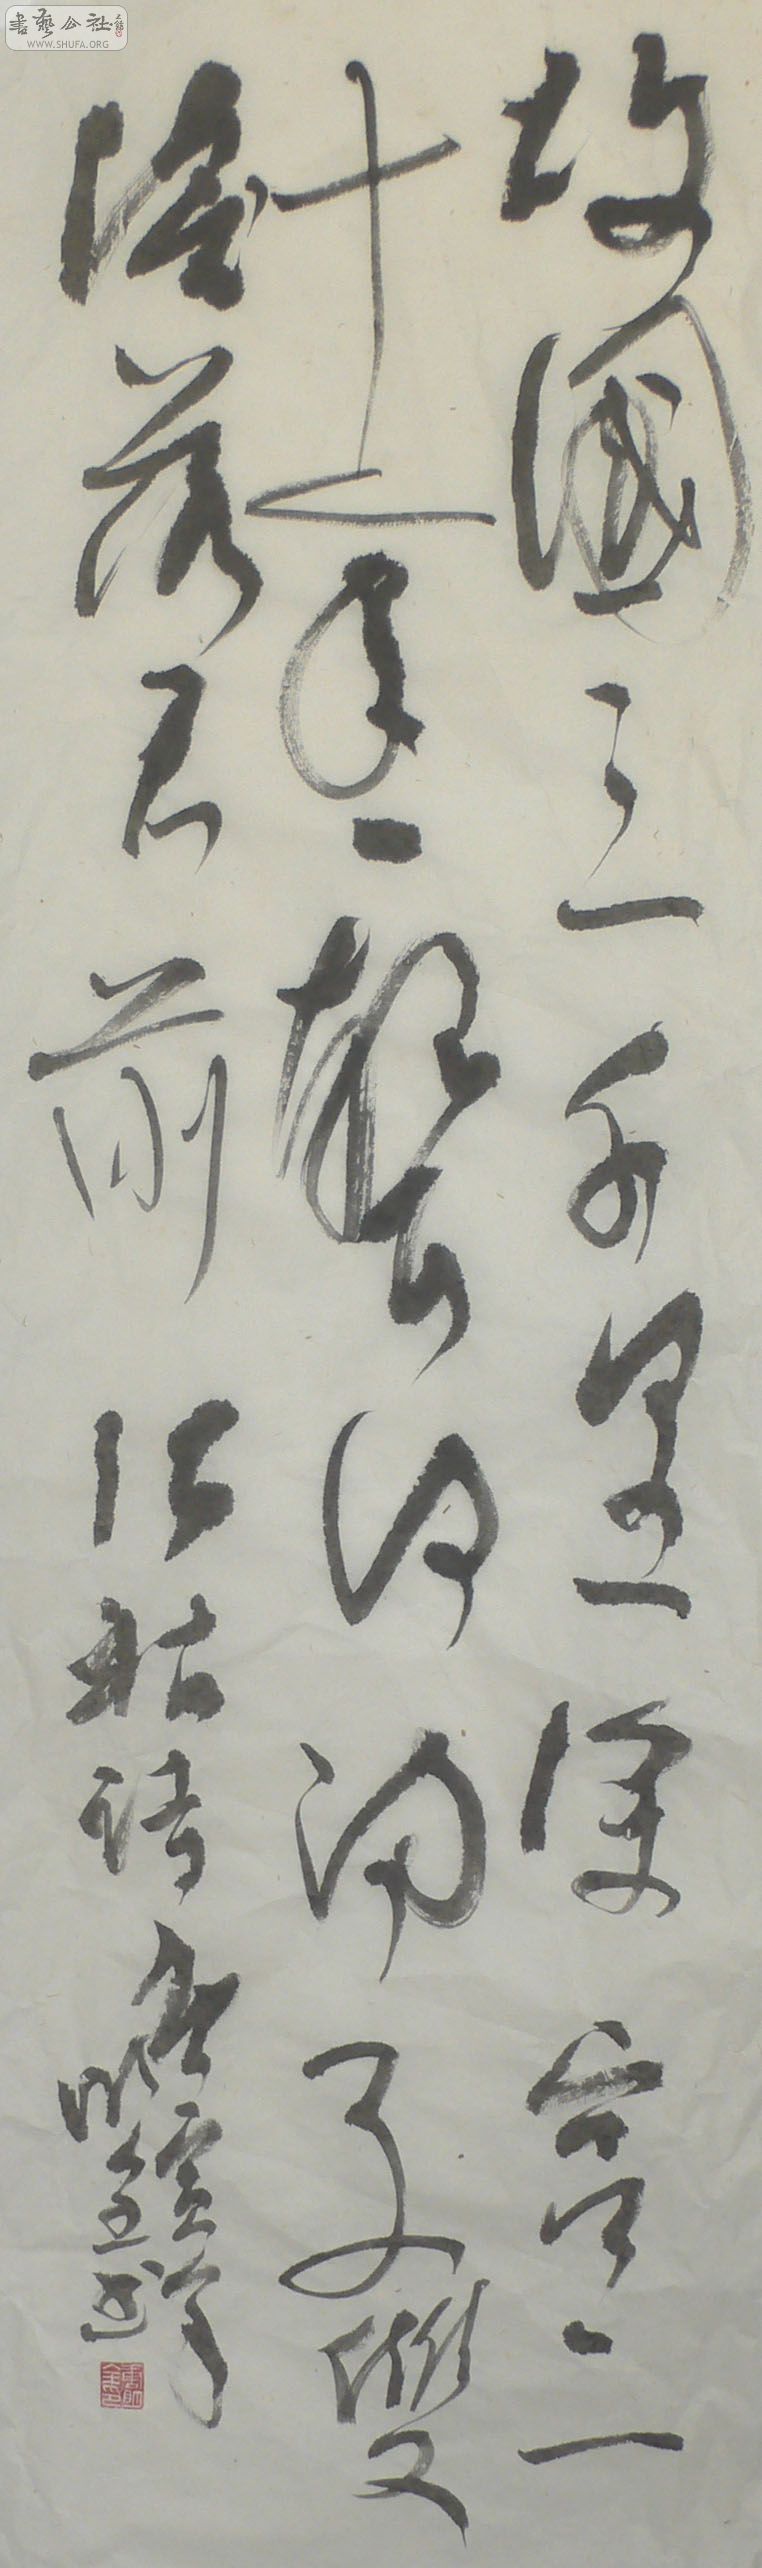 書藝公社
WWW.SHUFA.ORG
故國三千里深宫二
十年一聲何满子雙
淚落君前 张祜诗 庚寅年